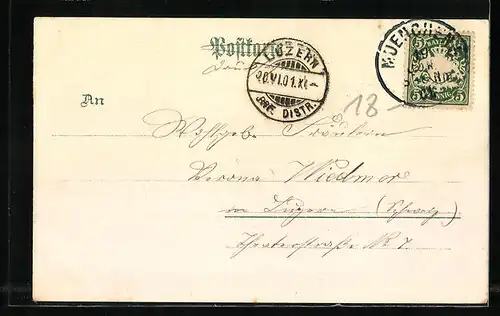 Postkarte
LUZERN
20.VI.01.XI–
BRF. DISTR.
MUENCHEN
5 5
5 5
18–
An
Wohlgeb. Fräulein
Verena Wiedmer
in Luzern (Schweiz)
Theaterstraße Nr 7.